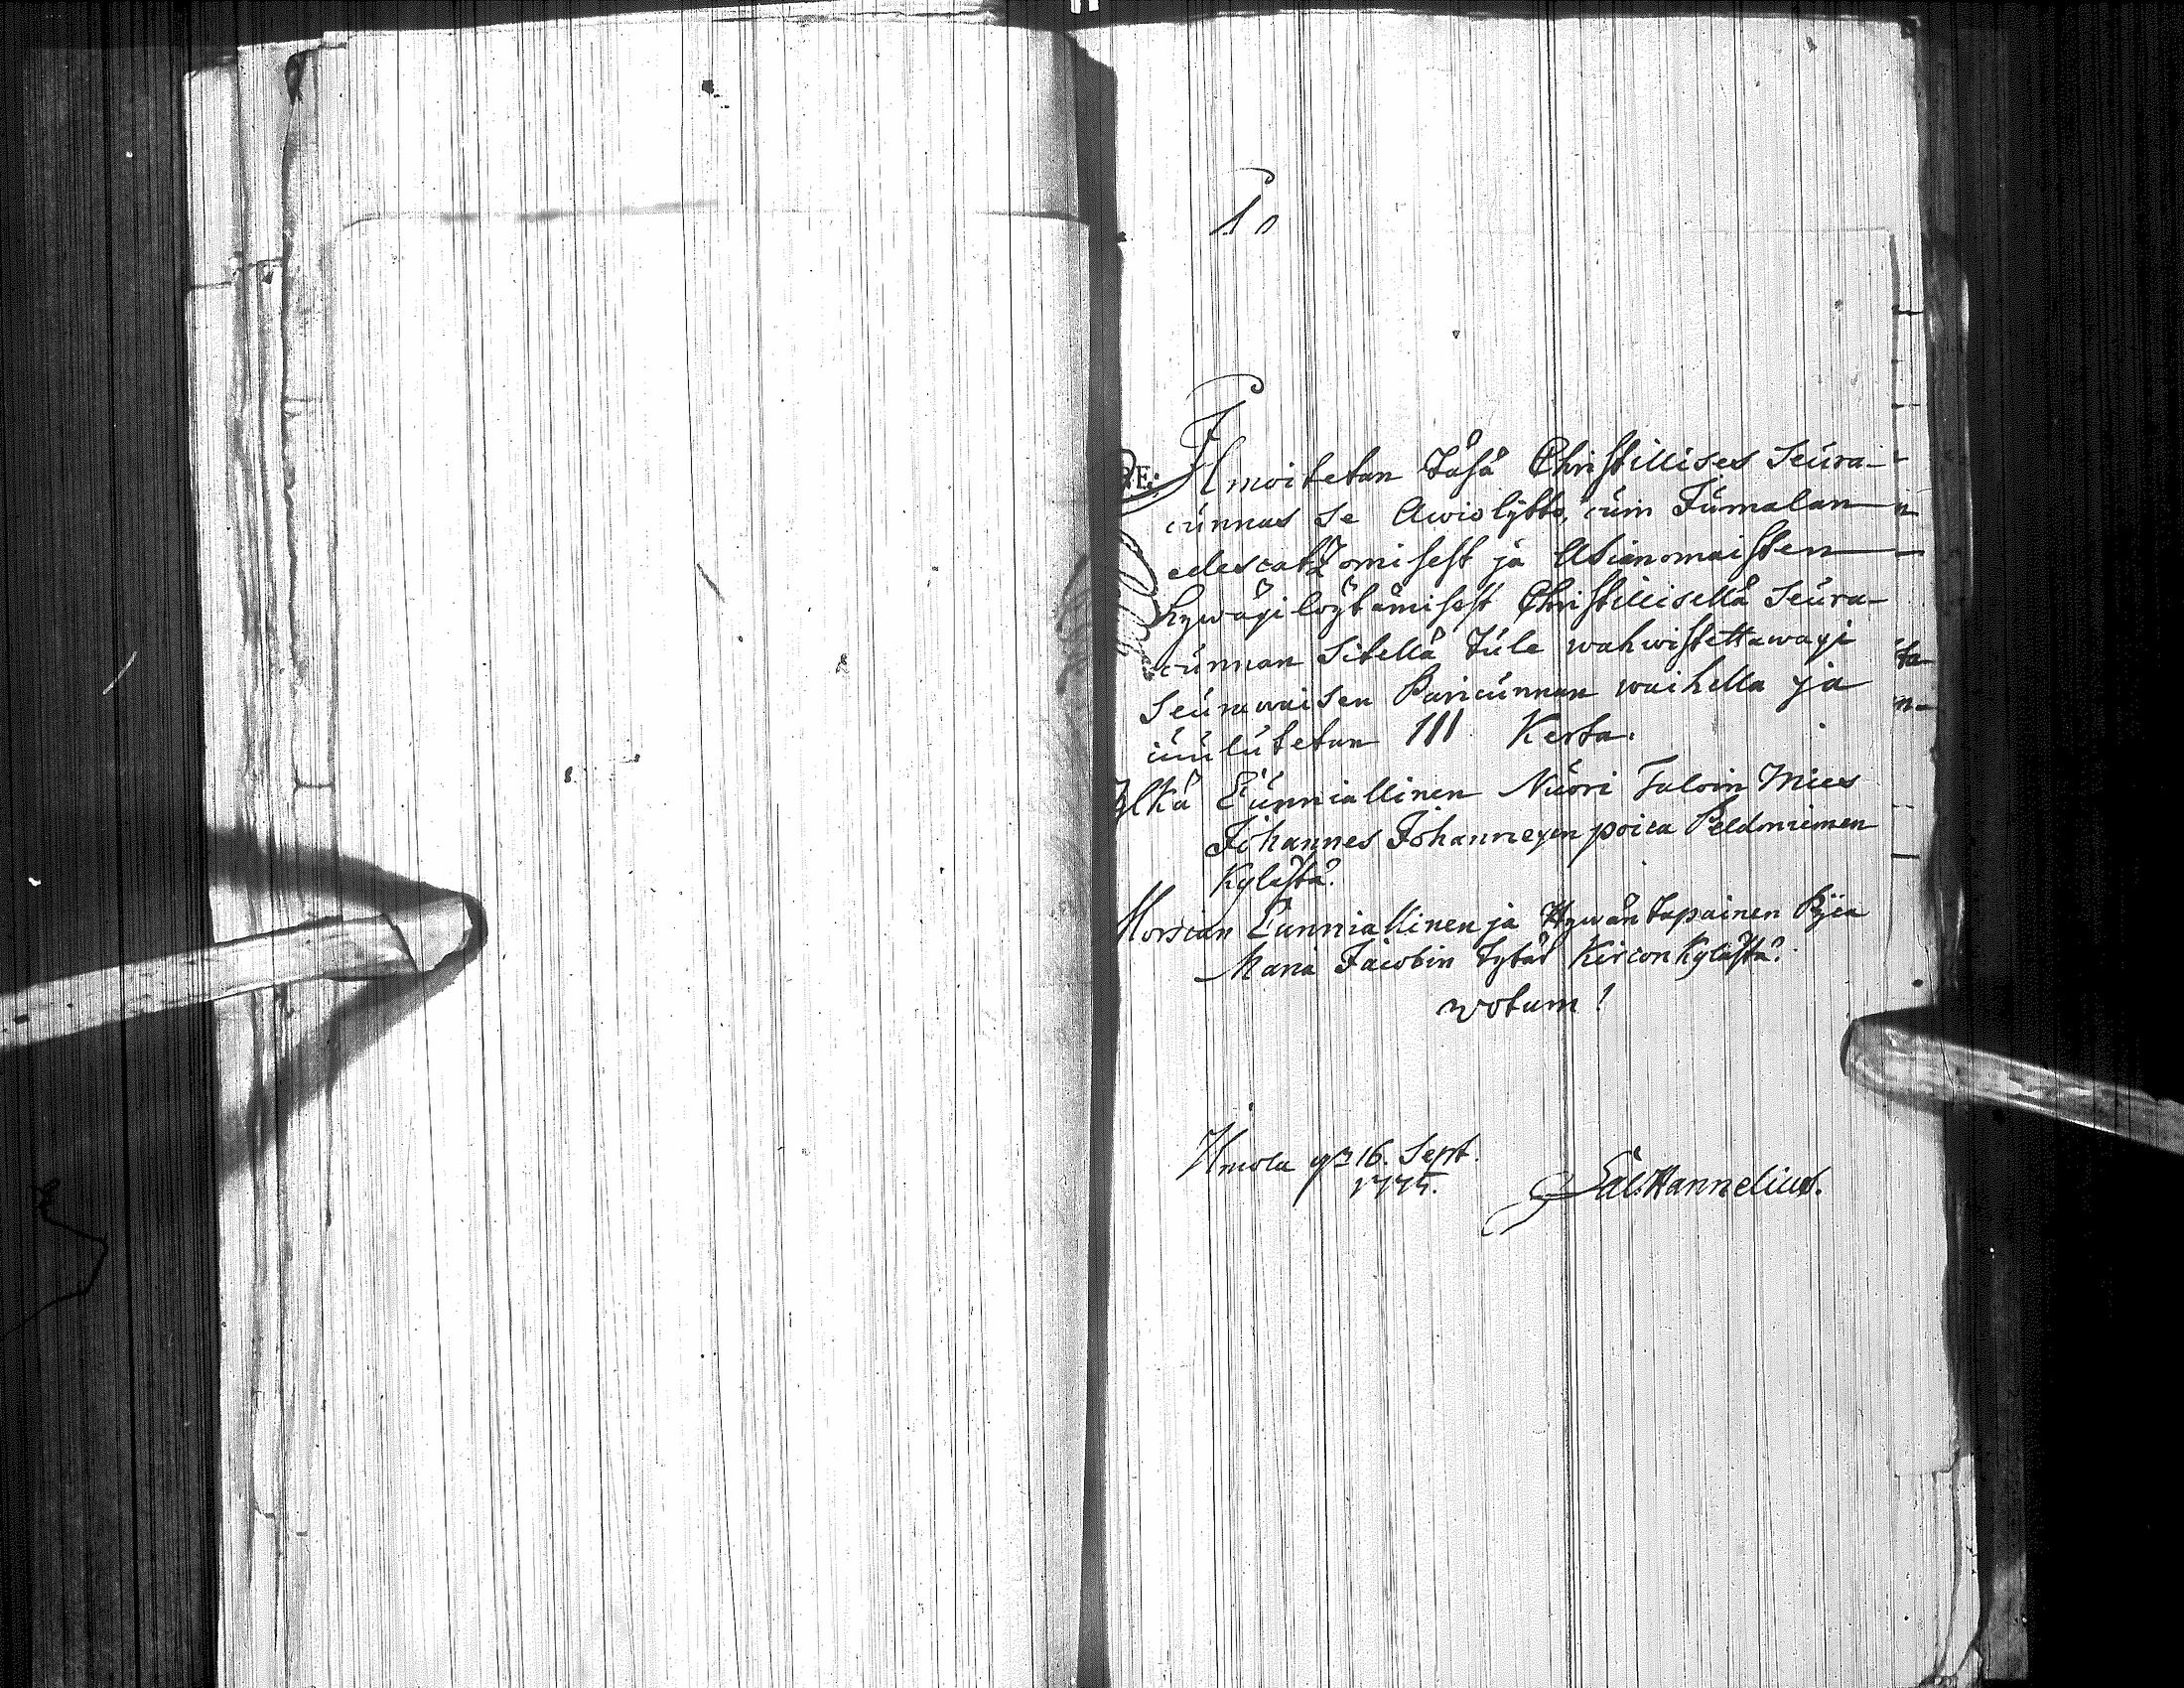 Ilmoitetan Tåsä Christillises Seura-
cunnas se Awioliitto, cuin Jumalan
edescatzomisest ja Asianomaisten
hywäxi löytämisest Christillisellä Seura-
cunnan Sitellä tule wahwistettawaxi
Seurawaisen Pariicunnan waihella ja
cuulutetan III Kerta.
Yljkä Cunniallinen Nuori Taloin Mies
Johannes Johannexen poica Peldoniemen
Kylästä.
Morsian Cunniallinen ja Hywän tapainen Pijca
Maria Jacobin Tytär Kircon Kylästä.
votum!
16. Sept.
Sal. Hannelius.
RE: